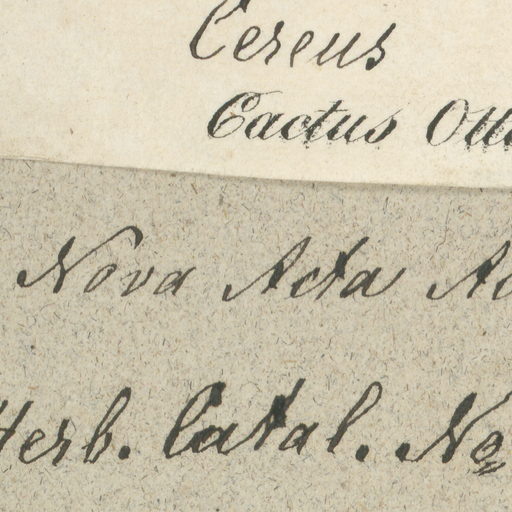 Cereus
Cactus Otto
Nova Acta Ac
Herb. Catal. No